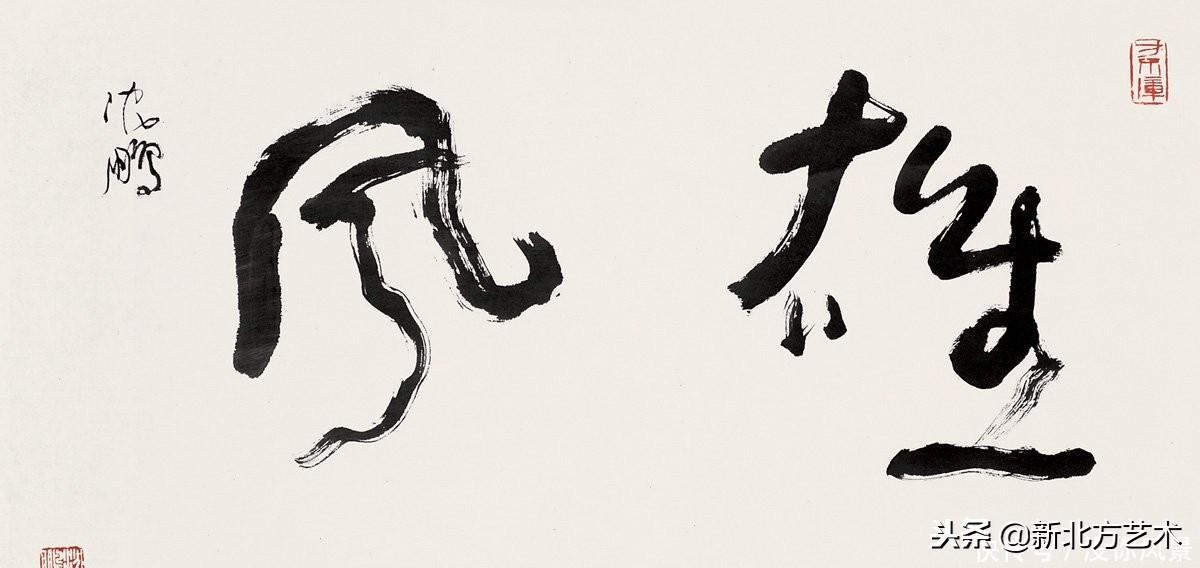 雄風
沈鵬
头条 @新北方艺术